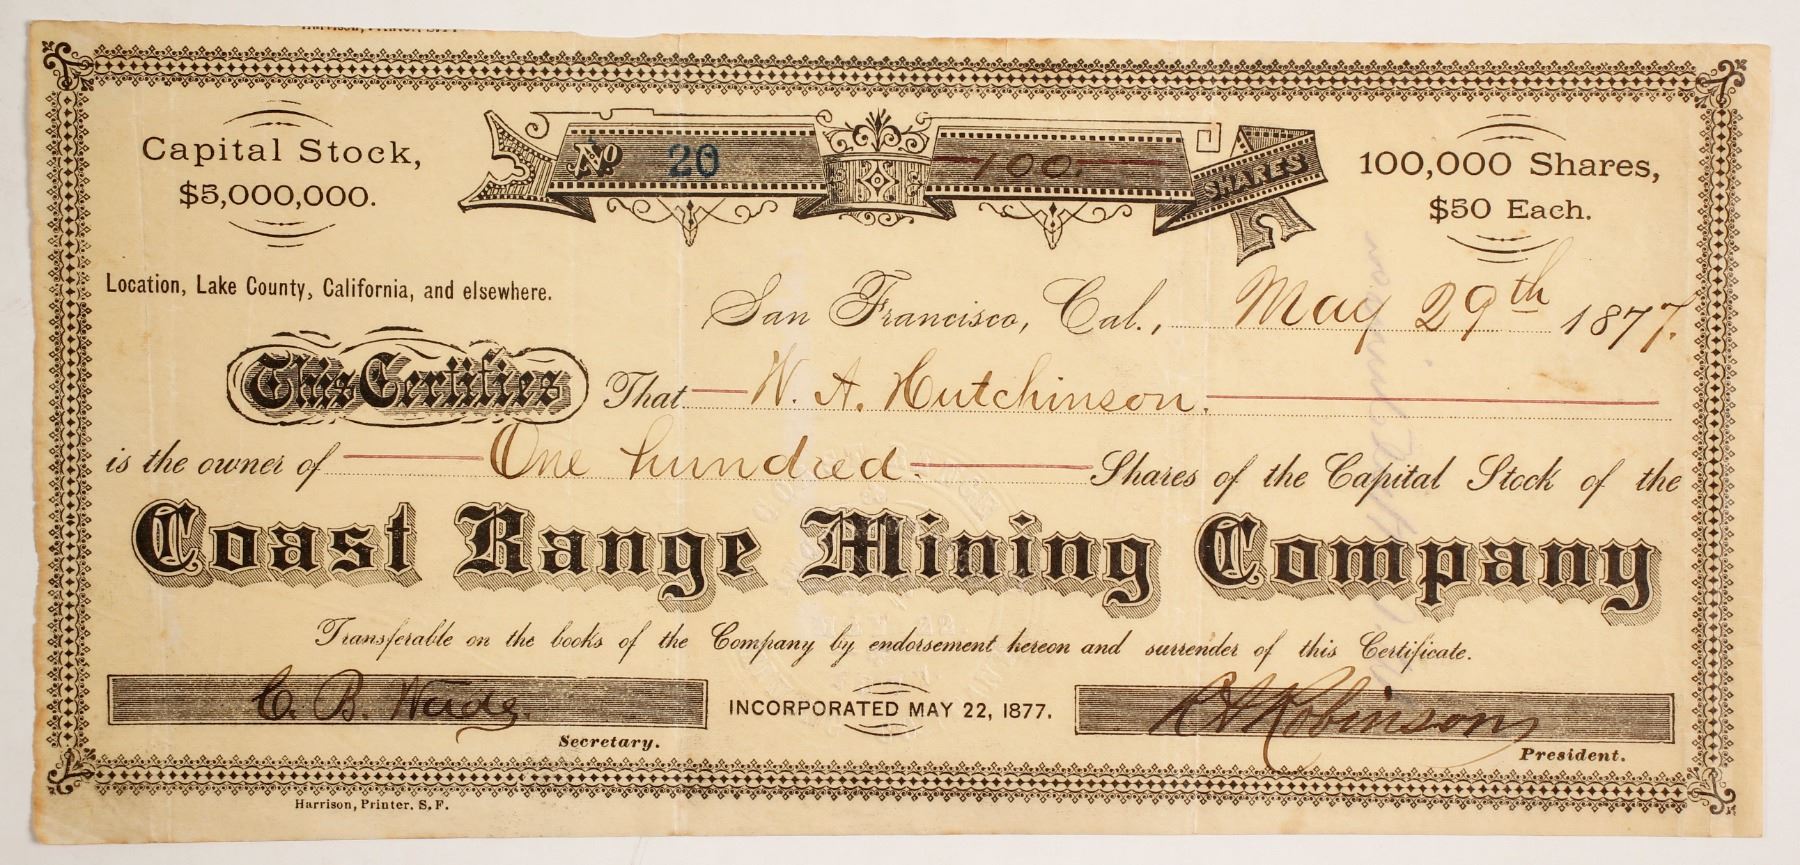 Capital Stock,
$5,000,000.
No 20 100. SHARES
100,000 Shares,
$50 Each.
Location, Lake County, California, and elsewhere.
San Francisco, Cal., May 29th 1877.
This Certifies That W. A. Hutchinson.
is the owner of One hundred Shares of the Capital Stock of the
Coast Range Mining Company
Transferable on the books of the Company by endorsement hereon and surrender of this Certificate.
C. B.
Secretary.
INCORPORATED MAY 22, 1877.
Robinson
President.
Harrison, Printer, S. F.